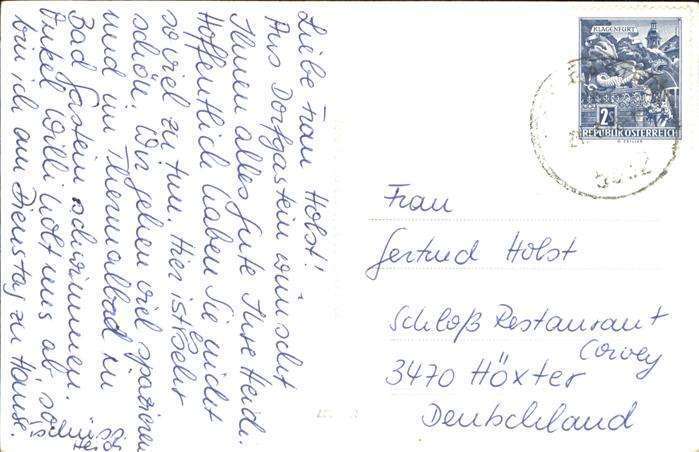 Liebe Frau Holst!
Aus Dorfgastein wünscht
Ihnen alles Gute Ihre Heidi.
Hoffentlich haben Sie nicht
soviel zu tun. Hier ist es sehr
schön. Wir gehen viel spazieren
und im Thermalbad in
Bad Gastein schwimmen.
Onkel Willi holt uns ab, so
bin ich am Dienstag zu Hause.
KLAGENFURT
2S
REPUBLIK OSTERREICH
Frau
Gertrud Holst
Schloß Restaurant
Corvey
3470 Höxter
Deutschland